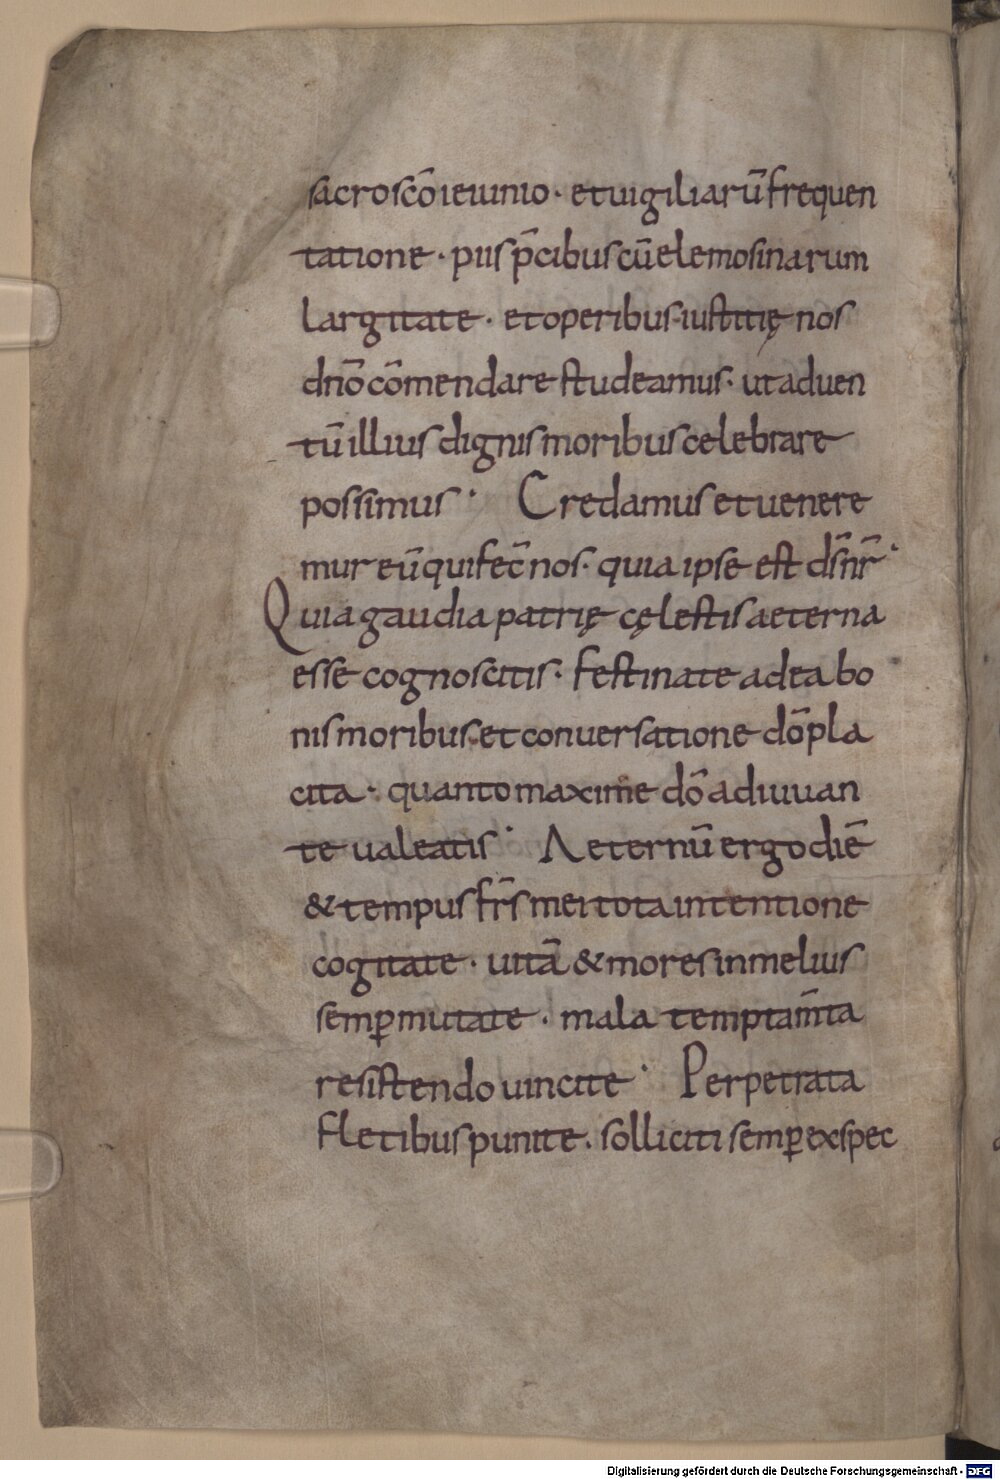 sacroscō ieiunio · et uigiliarū frequen
tatione · piis p̄cibus cū elemosinarum
largitate · et operibus iustitię nos
dnō cōmendare studeamus · ut aduen
tū illius dignis moribus celebrare
possimus · Credamus et uenere
mur eū qui fec̄ nos · quia ipse est ds̄ nr̄ ·
Quia gaudia patrię cęlestis aeterna
esse cognoscitis · festinate ad ea bo
nis moribus et conuersatione dō pla
cita · quanto maxime dō adiuuan
te ualeatis · Aeternū ergo diē
& tempus frs̄ mei tota intentione
cogitate · uitā & mores in melius
semꝑ mutate · mala temptam̄ta
resistendo uincite · Perpetrata
fletibus punite · solliciti semꝑ exspec
Digitalisierung gefördert durch die Deutsche Forschungsgemeinschaft - DFG